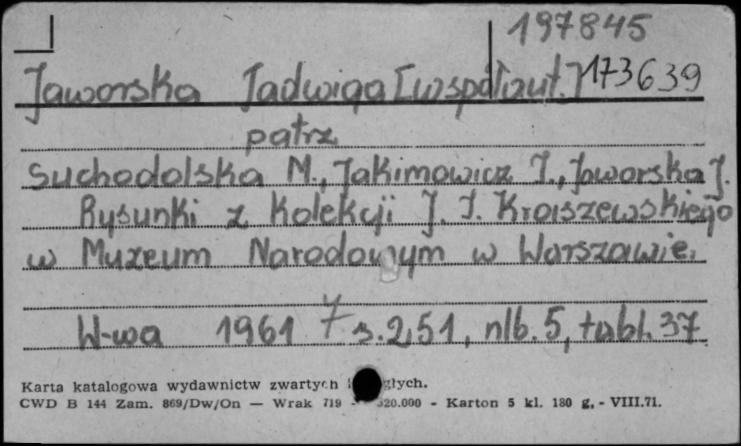 197845
Jaworska Jadwiga [współaut.] 173639
patrz
Suchodolska M., Jakimowicz I., Jaworska J.
Rysunki z kolekcji J. I. Kraszewskiego
w Muzeum Narodowym w Warszawie.
W-wa 1961 s. 251, nlb. 5, tabl. 37
Karta katalogowa wydawnictw zwartych głych.
CWD B 144 Zam. 869/Dw/On — Wrak 719 - 520.000 - Karton 5 kl. 180 g. - VIII.71.